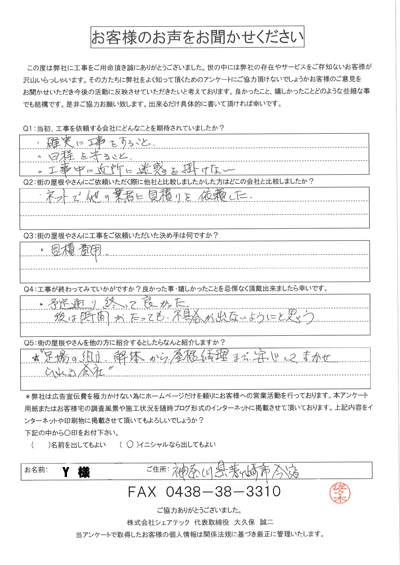 お客様のお声をお聞かせください
この度は弊社に工事をご用命頂き誠にありがとうございました。世の中には弊社の存在やサービスをご存知ないお客様が
沢山いらっしゃいます。その方たちに弊社をよく知って頂くためのアンケートにご協力頂けないでしょうかお客様のご意見を
お聞かせいただき今後の活動に反映させていただきたいと考えております。良かったこと、嬉しかったことどのような些細な事
でも結構です。是非ご協力お願い致します。出来るだけ具体的に書いて頂ければ幸いです。
Q1:当初、工事を依頼する会社にどんなことを期待されていましたか?
・確実に工事をすること
・日程を守ること
・工事中に近所に迷惑を掛けない
Q2:街の屋根やさんにご依頼いただく際に他社と比較しましたかした方はどこの会社と比較しましたか?
・ネットで他の業者に見積りを依頼した。
Q3:街の屋根やさんに工事をご依頼いただいた決め手は何ですか?
・見積費用
Q4:工事が終わってみていかがですか?良かった事・嬉しかったことを忌憚なく頂戴出来ましたら幸いです。
・予定通り終って良かった
後は時間がたっても不具合が出ないようにと思う
Q5:街の屋根やさんを他の方に紹介するとしたらなんと紹介しますか?
"足場の組立、解体から屋根修理まで安心してまかせ
られる会社"
＊弊社は広告宣伝費を極力かけない為にホームページだけを頼りにお客様への営業活動を行っております。本アンケート
用紙またはお客様宅の調査風景や施工状況を随時ブログ形式のインターネットに掲載させて頂いております。上記内容をイ
ンターネットや印刷物に掲載させて頂いてもよろしいでしょうか?
下記の中から〇印をお付下さい。
( )名前を出してもよい (〇)イニシャルなら出してもよい
お名前: Y 様 ご住所: 神奈川県茅ヶ崎市今宿
FAX 0438-38-3310
ご協力ありがとうございました。
株式会社シェアテック 代表取締役 大久保 誠二
当アンケートで取得したお客様の個人情報は関係法規に基づき厳正に管理いたします。